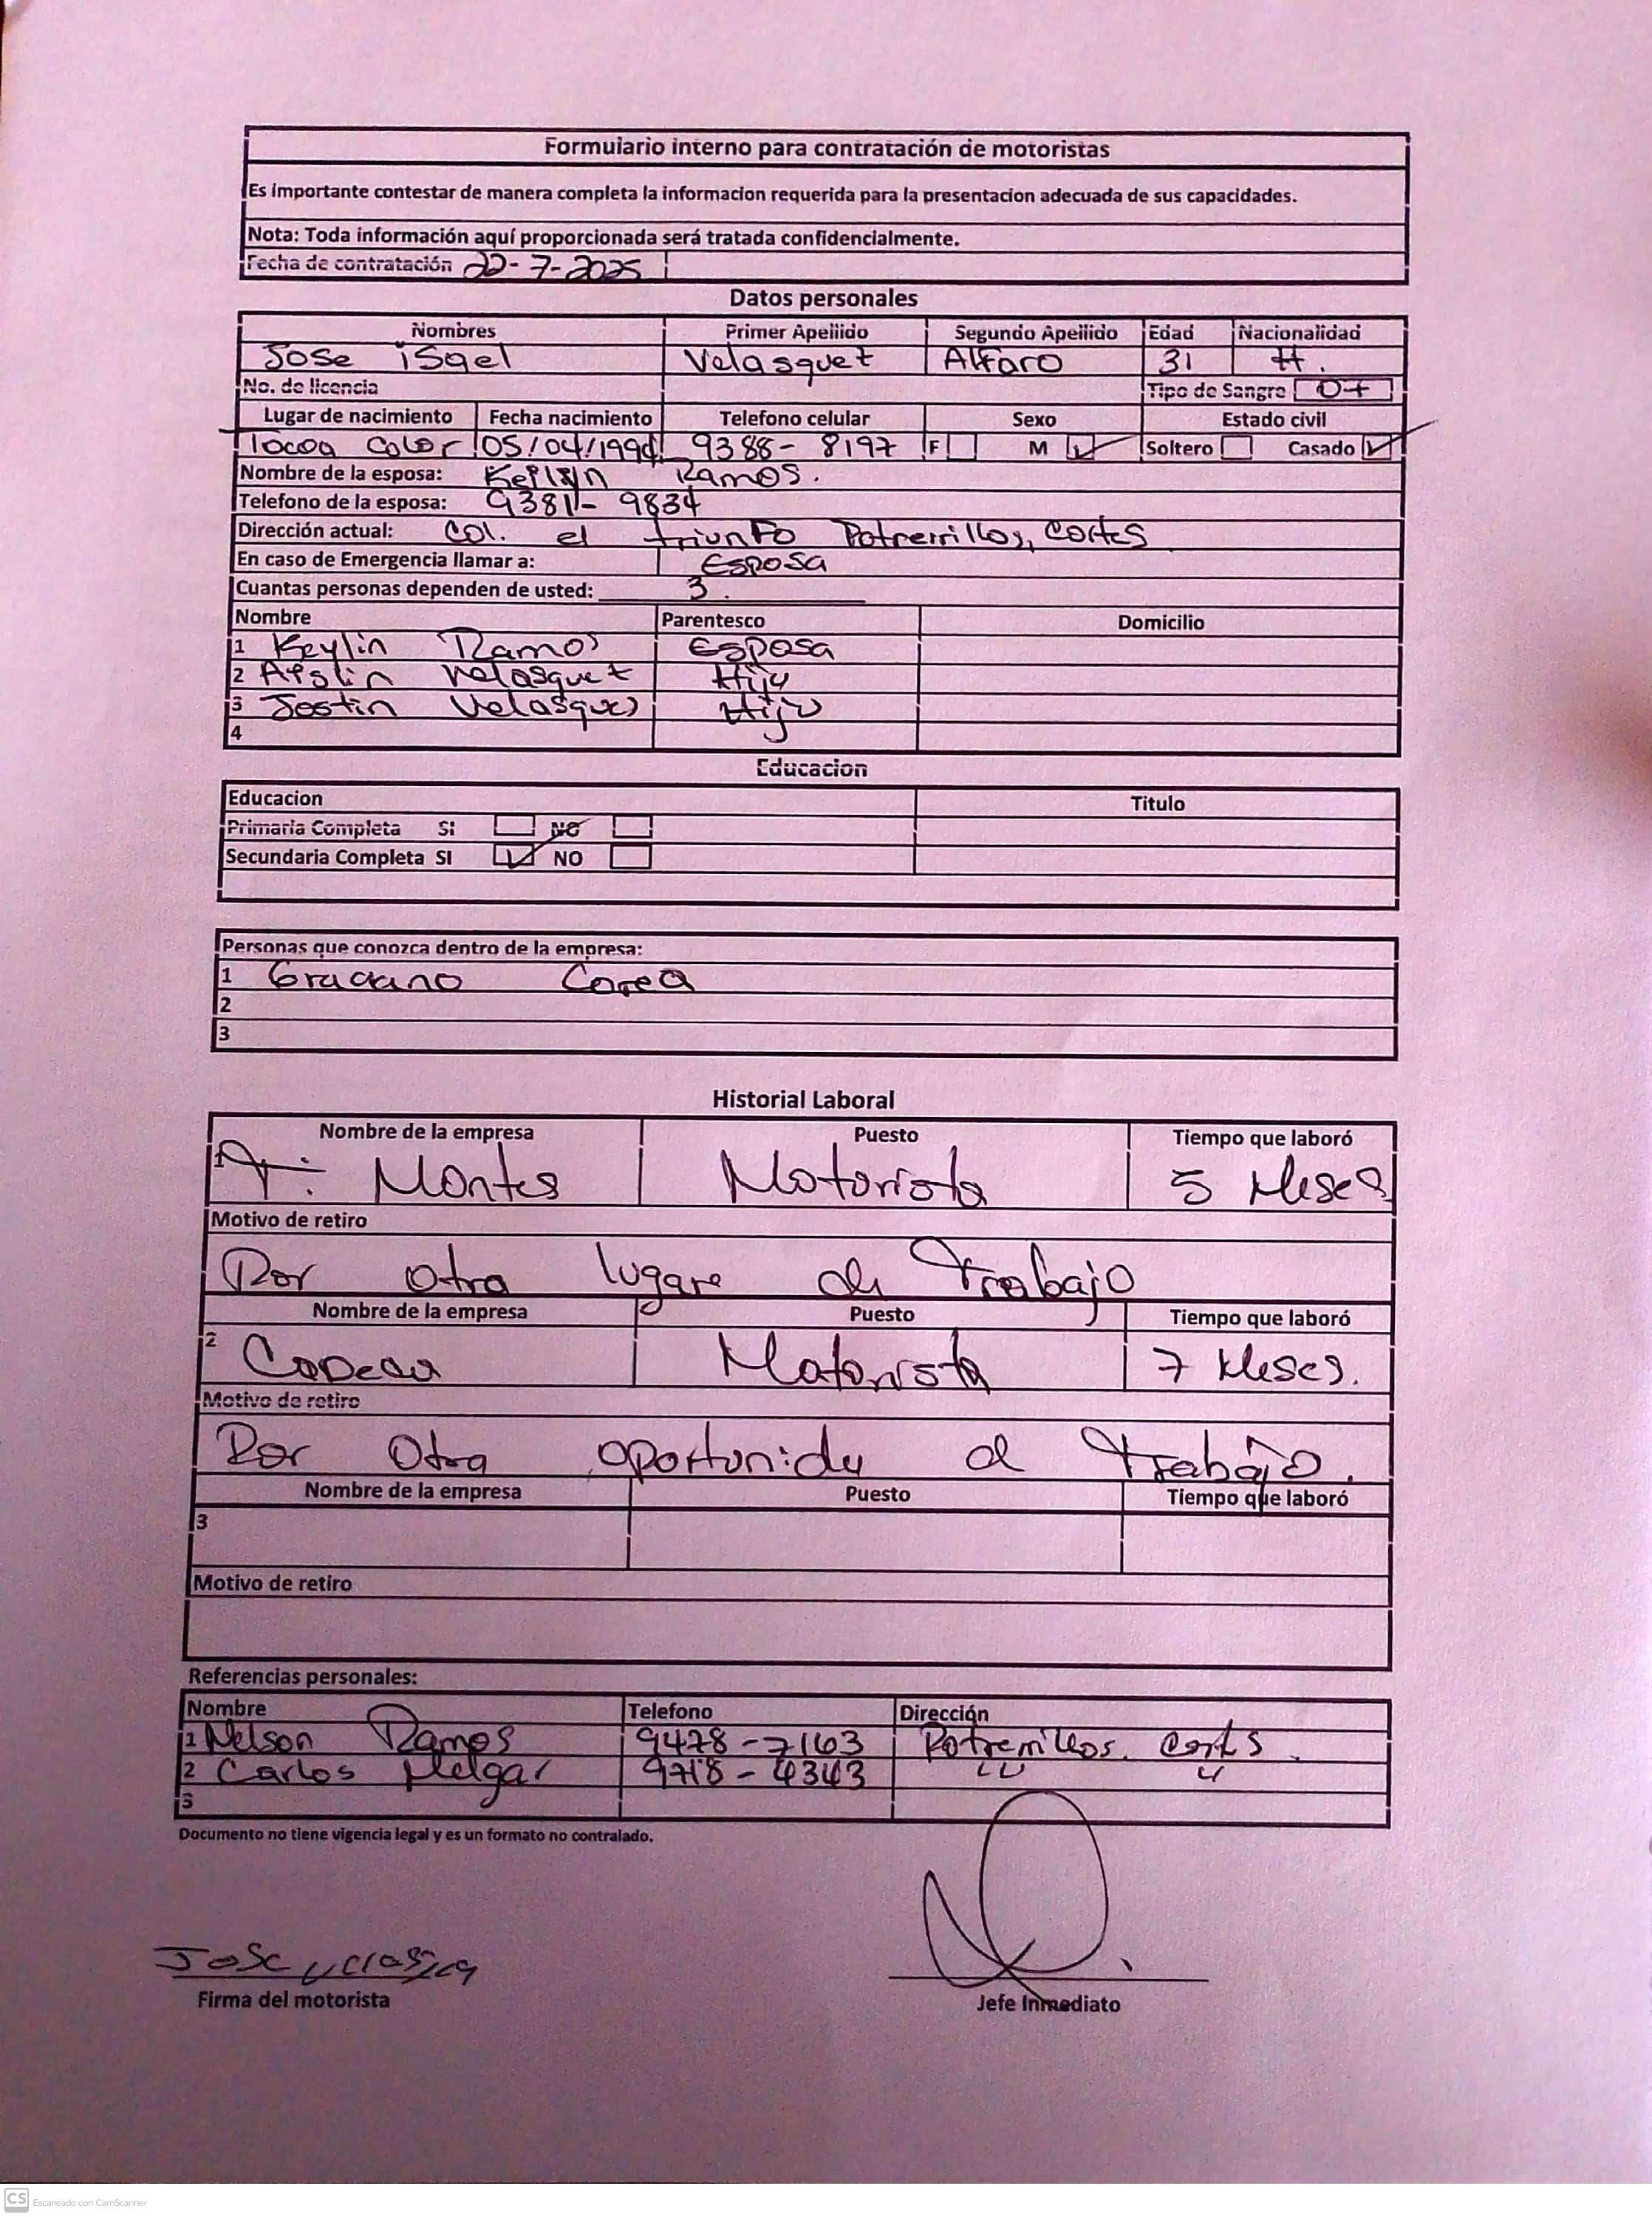 Formulario interno para contratación de motoristas
Es importante contestar de manera completa la informacion requerida para la presentacion adecuada de sus capacidades.
Nota: Toda información aquí proporcionada será tratada confidencialmente.
Fecha de contratación 22-7-2025
Datos personales
Nombres Primer Apellido Segundo Apellido Edad Nacionalidad
Jose isael Velasquez Alfaro 31 H.
No. de licencia Tipo de Sangre O+
Lugar de nacimiento Fecha nacimiento Telefono celular Sexo Estado civil
Tocoa Colon 05/04/1994 9388-8197 F M Soltero Casado
Nombre de la esposa: Keilyn Ramos.
Telefono de la esposa: 9381-9834
Dirección actual: Col. el triunfo Potrerrillos, Cortes
En caso de Emergencia llamar a: Esposa
Cuantas personas dependen de usted: 3.
Nombre Parentesco Domicilio
1 Keylin Ramos Esposa
2 Velasquez Hija
3 Jostin Velasquez Hijo
4
Educacion
Educacion Titulo
Primaria Completa SI NO
Secundaria Completa SI NO
Personas que conozca dentro de la empresa:
1 Corea
2
3
Historial Laboral
Nombre de la empresa Puesto Tiempo que laboró
1 T: Montes Motorista 5 Meses
Motivo de retiro
Por otra lugare de Trabajo
Nombre de la empresa Puesto Tiempo que laboró
2 Motorista 7 Meses.
Motivo de retiro
Por Otra oportunida d Trabajo.
Nombre de la empresa Puesto Tiempo que laboró
3
Motivo de retiro
Referencias personales:
Nombre Telefono Dirección
1 Nelson Ramos 9478-7163 Potrerrillos. Cortes.
2 Carlos Melgar 9718-4343 " "
3
Documento no tiene vigencia legal y es un formato no contralado.
Jose
Firma del motorista Jefe Inmediato
CS Escaneado con CamScanner